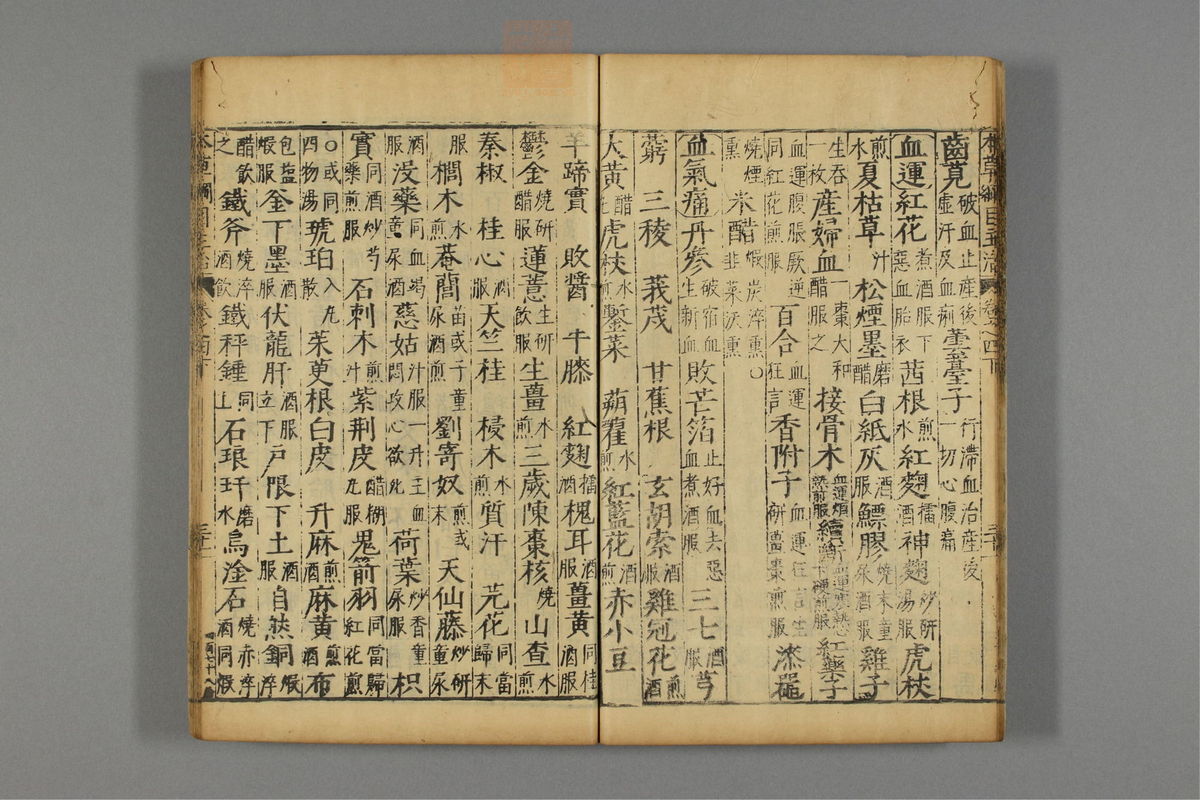 齒莧破血止產後虛汗及血痢蕓薹子行滯血治產後一切心腹痛
血運紅花煮酒服下惡血胎衣茜根煎水紅麴擂酒神麴炒研湯服虎杖
煎水夏枯草汁松煙墨磨醋白紙灰酒服鰾膠燒末童尿酒服雞子
生吞一枚產婦血一棗大和醋服之接骨木血運煩熱煎服續斷血運寒熱心下硬煎服紅藥子
血運腹脹厥逆同紅花煎服百合血運狂言香附子血運狂言生研薑棗煎服漆器
燒煙熏米醋煅炭淬熏韭菜沃熏○
血氣痛丹參破宿血生新血敗芒箔止好血去惡血煮酒服三七酒服芎
藭 三稜 莪茂 甘蕉根 玄胡索酒服雞冠花煎酒
大黃醋虎杖水煎鏨菜 蒴藋水煎紅藍花酒煎赤小豆
羊蹄實 敗醬 牛膝 紅麴擂酒槐耳酒服薑黃同桂酒服
鬱金燒研醋服蓮薏生研飲服生薑水煎三歲陳棗核燒山查水煎
秦椒 桂心酒服天竺桂 梫木水煎質汗 芫花同當歸末
服櫚木水煎菴䕡苗或子童尿酒煎劉寄奴煎或末天仙藤炒研童尿
酒服沒藥同血竭童尿酒慈姑汁服一升主血悶攻心欲死荷葉炒香童尿服枳
實同酒炒芍藥煎服石刺木煎汁紫荊皮醋糊丸服鬼箭羽同當歸紅花煎
○或同四物湯琥珀入丸散茱萸根白皮 升麻煎酒麻黃煎酒布
包鹽煅服釜下墨酒服伏龍肝酒服立下戶限下土酒服自然銅煅淬
醋飲之鐵斧燒淬酒飲鐵秤錘同上石琅玕磨水烏淦石燒赤淬酒同煅